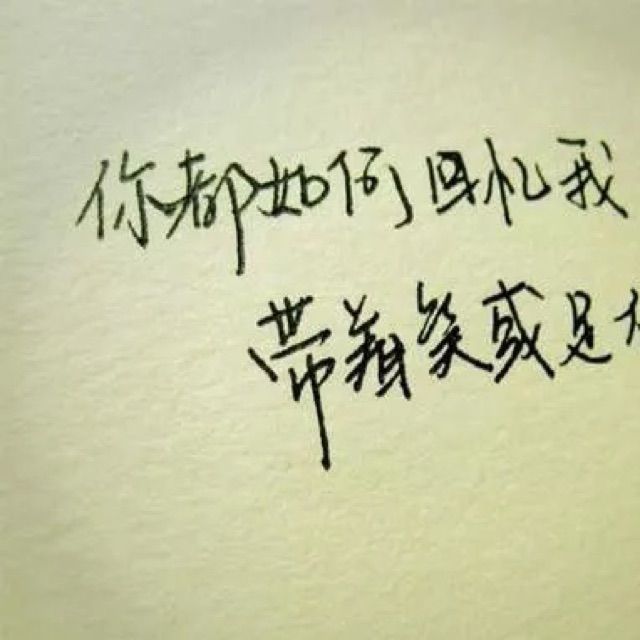 你都如何回忆我
带着笑或是